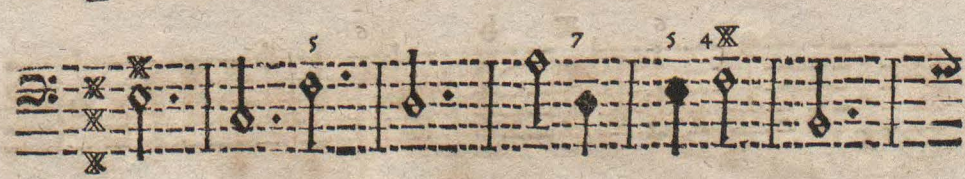 5 7 5 4